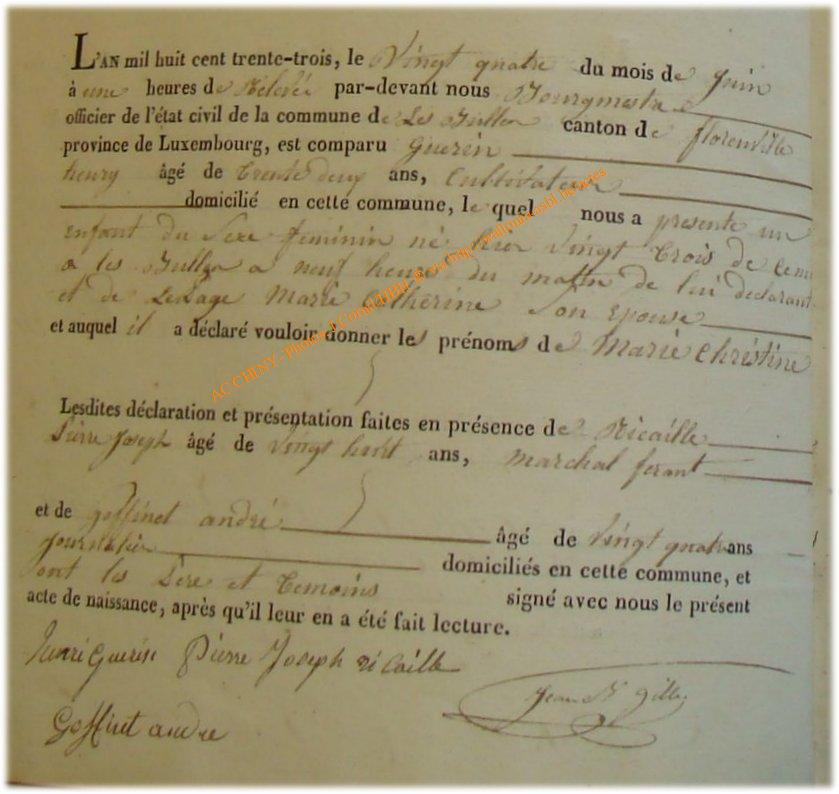 L'AN mil huit cent trente-trois, le Vingt quatre du mois de Juin
à une heures de Relevée par-devant nous Bourgmestre
officier de l'état civil de la commune de Les Bulles canton de florenville
province de Luxembourg, est comparu Guerin
henry âgé de trente deux ans, Cultivateur
domicilié en cette commune, le quel nous a presenté un
enfant du Sexe feminin né hier Vingt trois de
a les Bulles a neuf heures du matin de lui declarant
et de Marie Catherine Son Epouse
et auquel il a déclaré vouloir donner les prénoms de Marie Christine
Lesdites déclaration et présentation faites en présence de Ricaille
Pierre Joseph âgé de Vingt huit ans, Marchal ferant
et de goffinet andré âgé de Vingt quatre ans
journalier domiciliés en cette commune, et
ont les Père et Temoins signé avec nous le présent
acte de naissance, après qu'il leur en a été fait lecture.
henri Guerin Pierre Joseph ricaille
Jean N Gille
Goffinet andre
AC CHINY - Photos